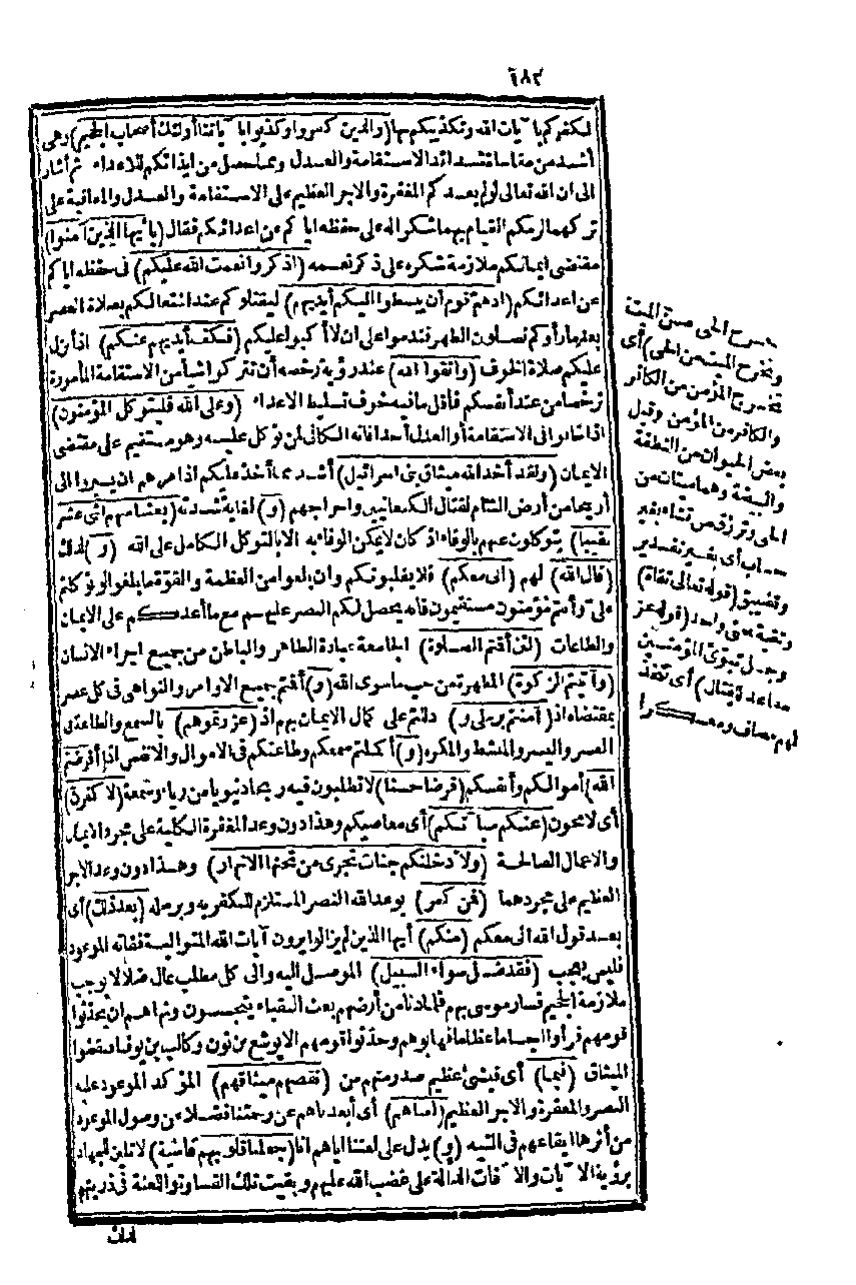 ١٨٢
لكفركم بآيات الله وتكذيبكم بها (والذين كفروا وكذبوا بآياتنا أولئك أصحاب الجحيم) وهى
أشد من مقاساة شدائد الاستقامة والعدل وبما حصل من ايذائكم للاعداء ثم أشار
الى ان الله تعالى لو لم يعدكم المغفرة والاجر العظيم على الاستقامة والعدل والمعاقبة على
تركهما لزمكم القيام بهما شكرا له على حفظه اياكم عن اعدائكم فقال (يا أيها الذين آمنوا)
مقتضى ايمانكم ملازمة شكره على ذكر نعمه (اذكروا نعمت الله عليكم) فى حفظه اياكم
عن اعدائكم (اذهم قوم أن يبسطوا اليكم أيديهم) ليقتلوكم عند اشتغالكم بصلاة العصر
بعد ما رأوكم تصلون الظهر فندموا على ان لا أكبوا عليكم (فكف أيديهم عنكم) اذ أنزل
عليكم صلاة الخوف (واتقوا الله) عند رؤية رخصه أن تتركوا شيأ من الاستقامة المأمورة
ترخصا من عند أنفسكم فأقل ما فيه خوف تسليط الاعداء (وعلى الله فليتوكل المؤمنون)
اذا خافوا فى الاستقامة أو العدل أحدا فانه الكافى لمن توكل عليه وهو مستقيم على مقتضى
الايمان (ولقد أخذ الله ميثاق بنى اسرائيل) أشد مما أخذ عليكم اذ امرهم ان يسيروا الى
أريحا من أرض الشام لقتال الكنعانيين واخراجهم (و) لغاية شدته (بعثنا منهم اثنى عشر
نقيبا) يتوكلون عنهم بالوفاء اذ كان لا يمكن الوفاء به الا بالتوكل الكامل على الله (و) لذلك
(قال الله) لهم (انى معكم) فلا يغلبونكم وان بلغوا من العظمة والقوة ما بلغوا لو توكلتم
على وأنتم مؤمنون مستقيمون فانه يحصل لكم النصر عليهم مع ما أعدكم على الايمان
والطاعات (لئن أقتم الصلوة) الجامعة عبادة الظاهر والباطن من جميع اجزاء الانسان
(وآتيتم الزكوة) المطهرة عن حب ما سوى الله (و) أقتم جميع الاوامر والنواهى فى كل عصر
بمقتضاه اذ (آمنتم برسلى و) دلتم على كمال الايمان بهم اذ (عزرتموهم) بالسمع والطاعة فى
العسر واليسر والمنشط والمكره (و) أكملتم سمعكم وطاعتكم فى الاموال والانفس اذ (أقرضتم
الله) أموالكم وأنفسكم (قرضا حسنا) لا تطلبون فيه ربحا دنيويا من رياء وسمعة (لأكفرن)
أى لامحون (عنكم سيآتكم) أى معاصيكم وهذا دون وعد المغفرة الكلية على مجرد الايمان
والاعمال الصالحة (ولأدخلنكم جنات تجرى من تحتها الانهار) وهذا دون وعد الاجر
العظيم على مجردهما (فمن كفر) بوعد الله النصر المستلزم للكفر به وبرسله (بعد ذلك) أى
بعد قول الله انى معكم (منكم) أيها الذين لم يزالوا يرون آيات الله المتوالية فمثاله الموعود
فليس بعجب (فقد ضل سواء السبيل) الموصل اليه والى كل مطلب عال ضلالا يوجب
ملازمة الجحيم فسار موسى بهم فلما دنا من أرضهم بعث النقباء يتجسسون ونهاهم ان يحدثوا
قومهم فرأوا اجساما عظاما فهابوهم وحدثوا قومهم الا يوشع بن نون وكالب بن يوفنا فنقضوا
الميثاق (فبما) أى فبشئ عظيم صدر منهم من (نقضهم ميثاقهم) المؤكد الموعود عليه
النصر والمغفرة والاجر العظيم (لعناهم) أى أبعدناهم عن رحمتنا فضلا عن وصول الموعود
من أثرها ايقاعهم فى التيه (و) يدل على لعننا اياهم انا (جعلنا قلوبهم قاسية) لا تلين للجهاد
برؤية الآيات والآفات الدالة على غضب الله عليهم وبقيت تلك القساوة واللعنة فى ذريتهم
لذلك
يخرج الحى من الميت
ويخرج الميت من الحى) أى
يخرج المؤمن من الكافر
والكافر من المؤمن وقيل
يعنى الحيوان من النطفة
والبيضة وهما ميتان من
الحى وترزق من تشاء بغير
حساب أى بغير تقدير
وتضييق (قوله تعالى تقاة)
وتقية بمعنى واحد (قوله عز
وجل تبوئ المؤمنين
مقاعد للقتال) أى تتخذ
لهم مصاف ومعسكرا